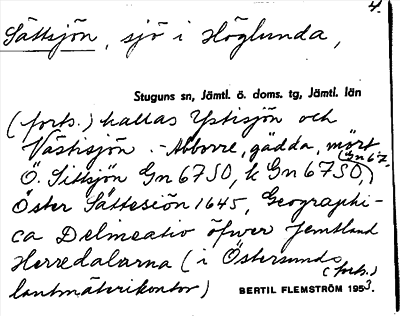 4.
Sättsjön, sjö i Höglunda,
Stuguns sn, Jämtl. ö. doms. tg, Jämtl. län
(forts.) kallas Ystisjön och
Västisjön. - Abborre, gädda, mört
Ö. Sittsjön Gn 67 SO, k Gn 67 SO, (Gn 67.)
Öster Sättesiön 1645, Geographi-
ca Delineatio öfwer Jemtland
Herredalarna (i Östersunds
lantmäterikontor) (forts.)
BERTIL FLEMSTRÖM 1953.